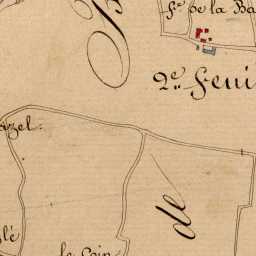 F.e de la Ba
2.e Feui
azel.
de
lé
le Coin